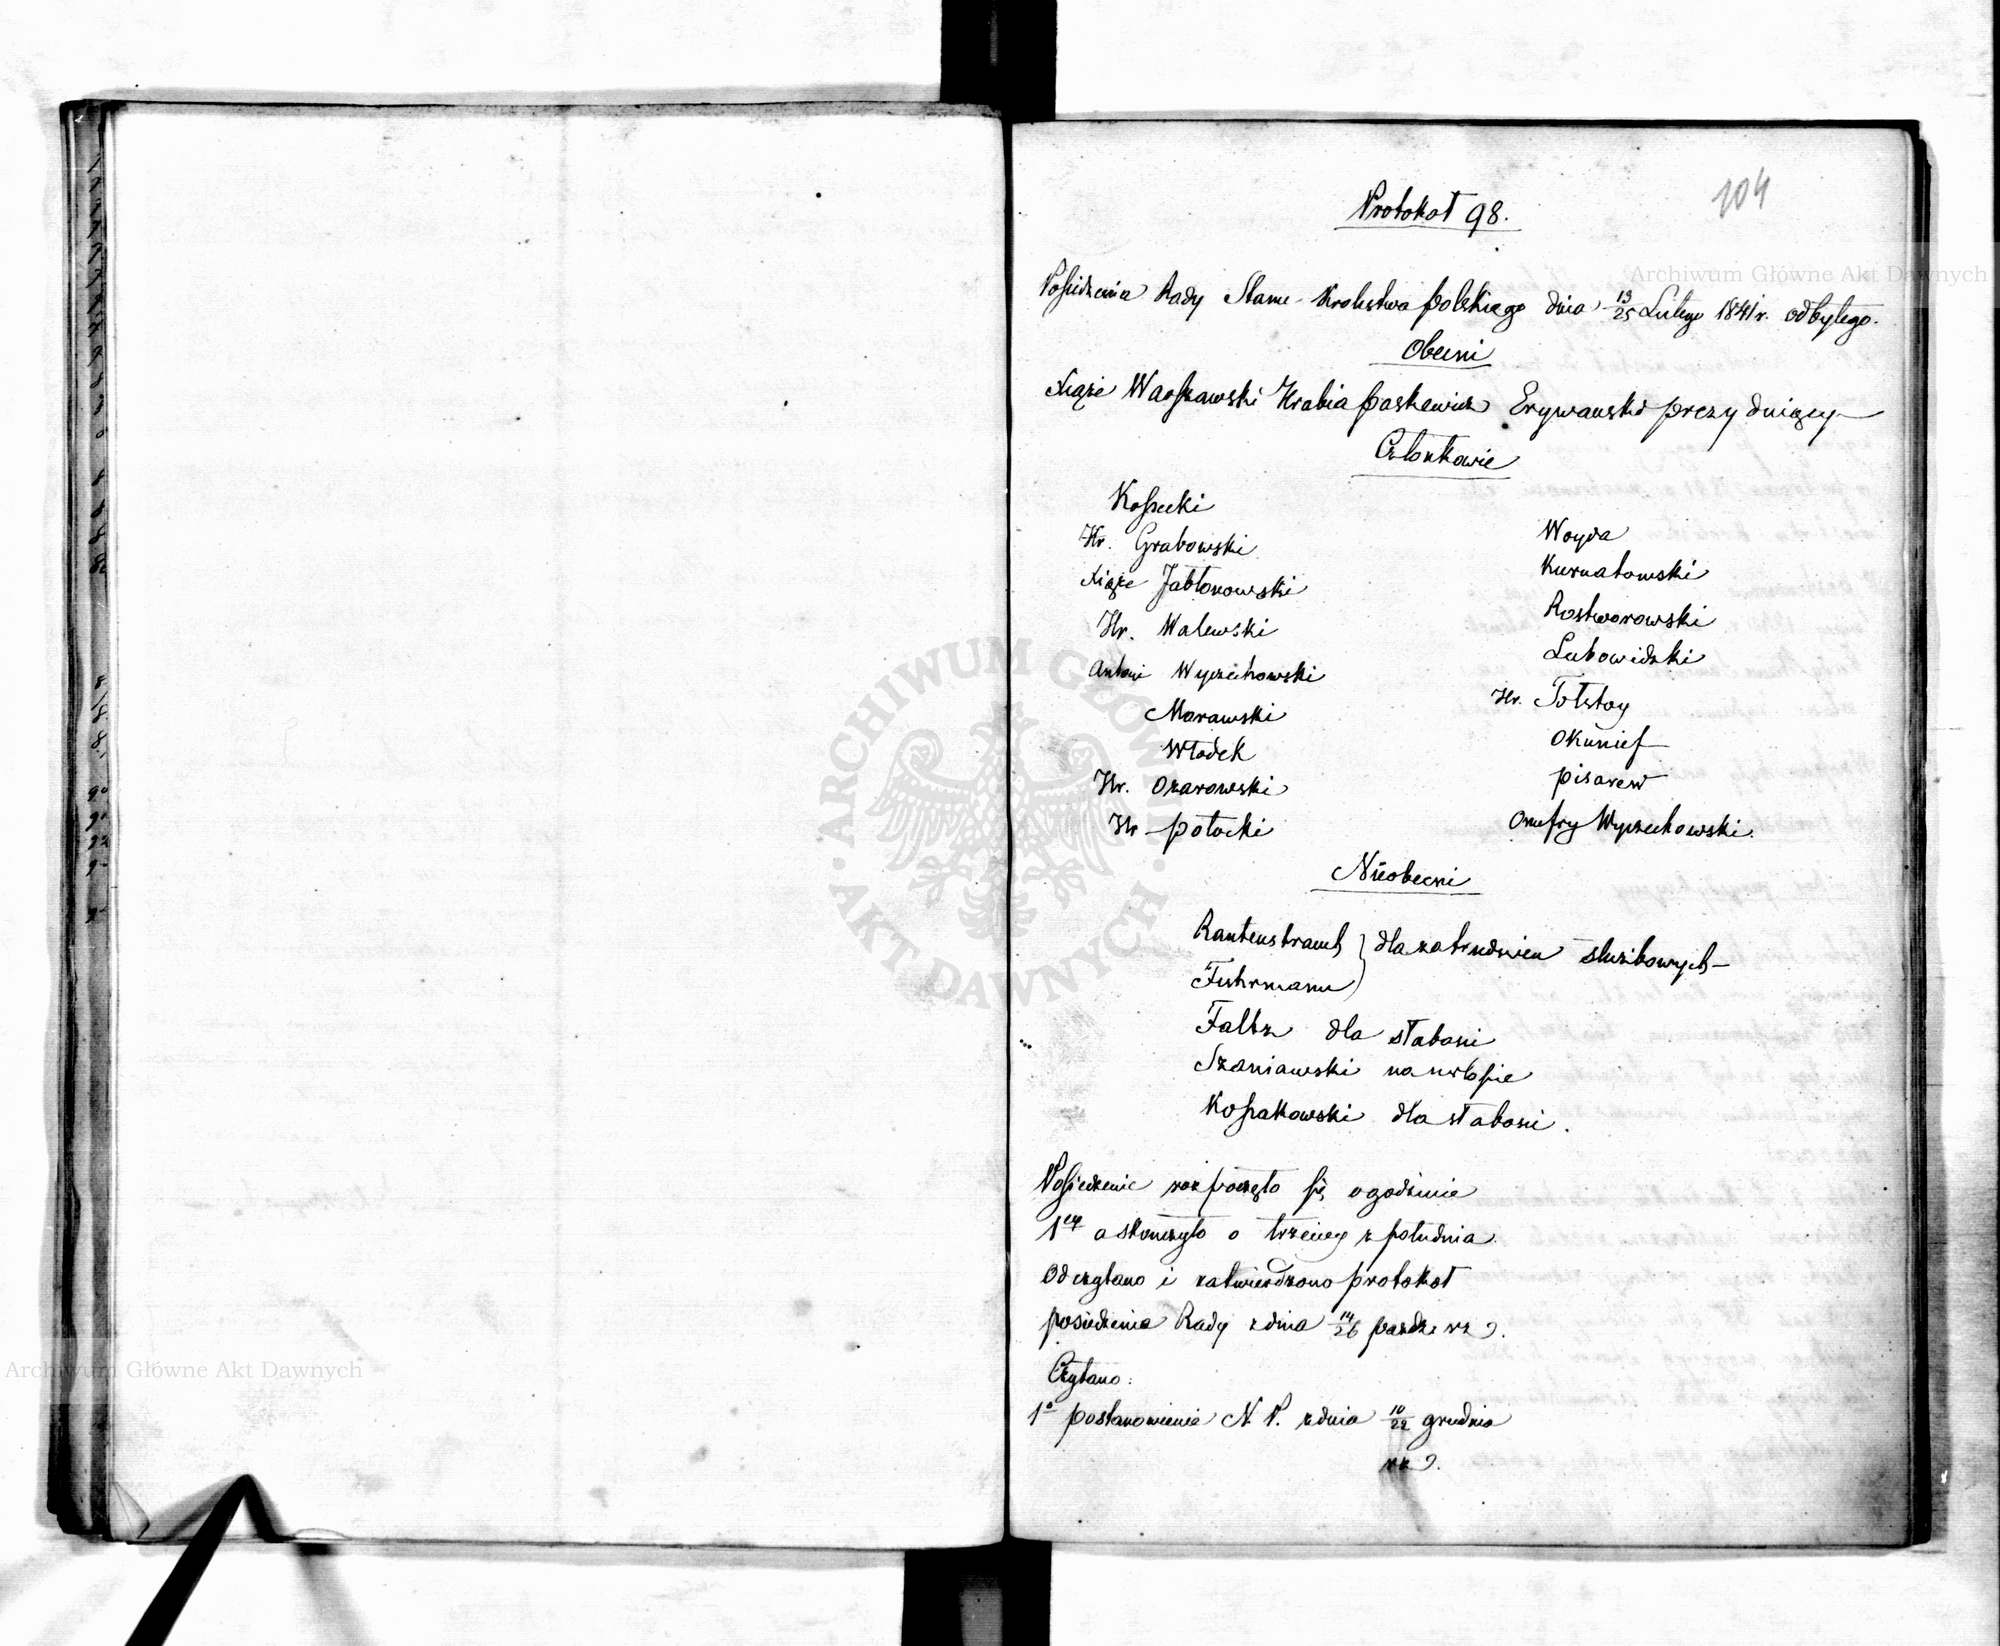 104
Protokoł 98.
Posiedzenia Rady Stanu Krolestwa polskiego dnia 13/25 Lutego 1841 r. odbytego.
Obecni
Xiąże Warszawski Hrabia paskewicz Erywański prezydujący
Członkowie
Kossecki
Hr. Grabowski
Xiąże Jabłonowski
Hr. Walewski
Antoni Wyczechowski
Morawski
Włodek
Hr. Ożarowski
Hr potocki
Woyda
Kurnatowski
Rostworowski
Lubowidzki
Hr. Tołstoy
Okunief
pisarew
Onufry Wyczechowski.
Nieobecni
Rautenstrauch } dla zatrudnien służbowych
Fuhrmann
Faltz dla słabosci
Szaniawski na urlopie
Kossakowski dla słabosci.
Posiedzenie rozpoczęło się o godzinie
1ej a skonczyło o trzeciey z południa.
Odczytano i zatwierdzono protokoł
posiedzenia Rady z dnia 14/26 pazdz:
Czytano:
1° postanowienie N. P. z dnia 10/22 grudnia
Archiwum Główne Akt Dawnych
Archiwum Główne Akt Dawnych
· ARCHIWUM GŁÓWNE · AKT DAWNYCH